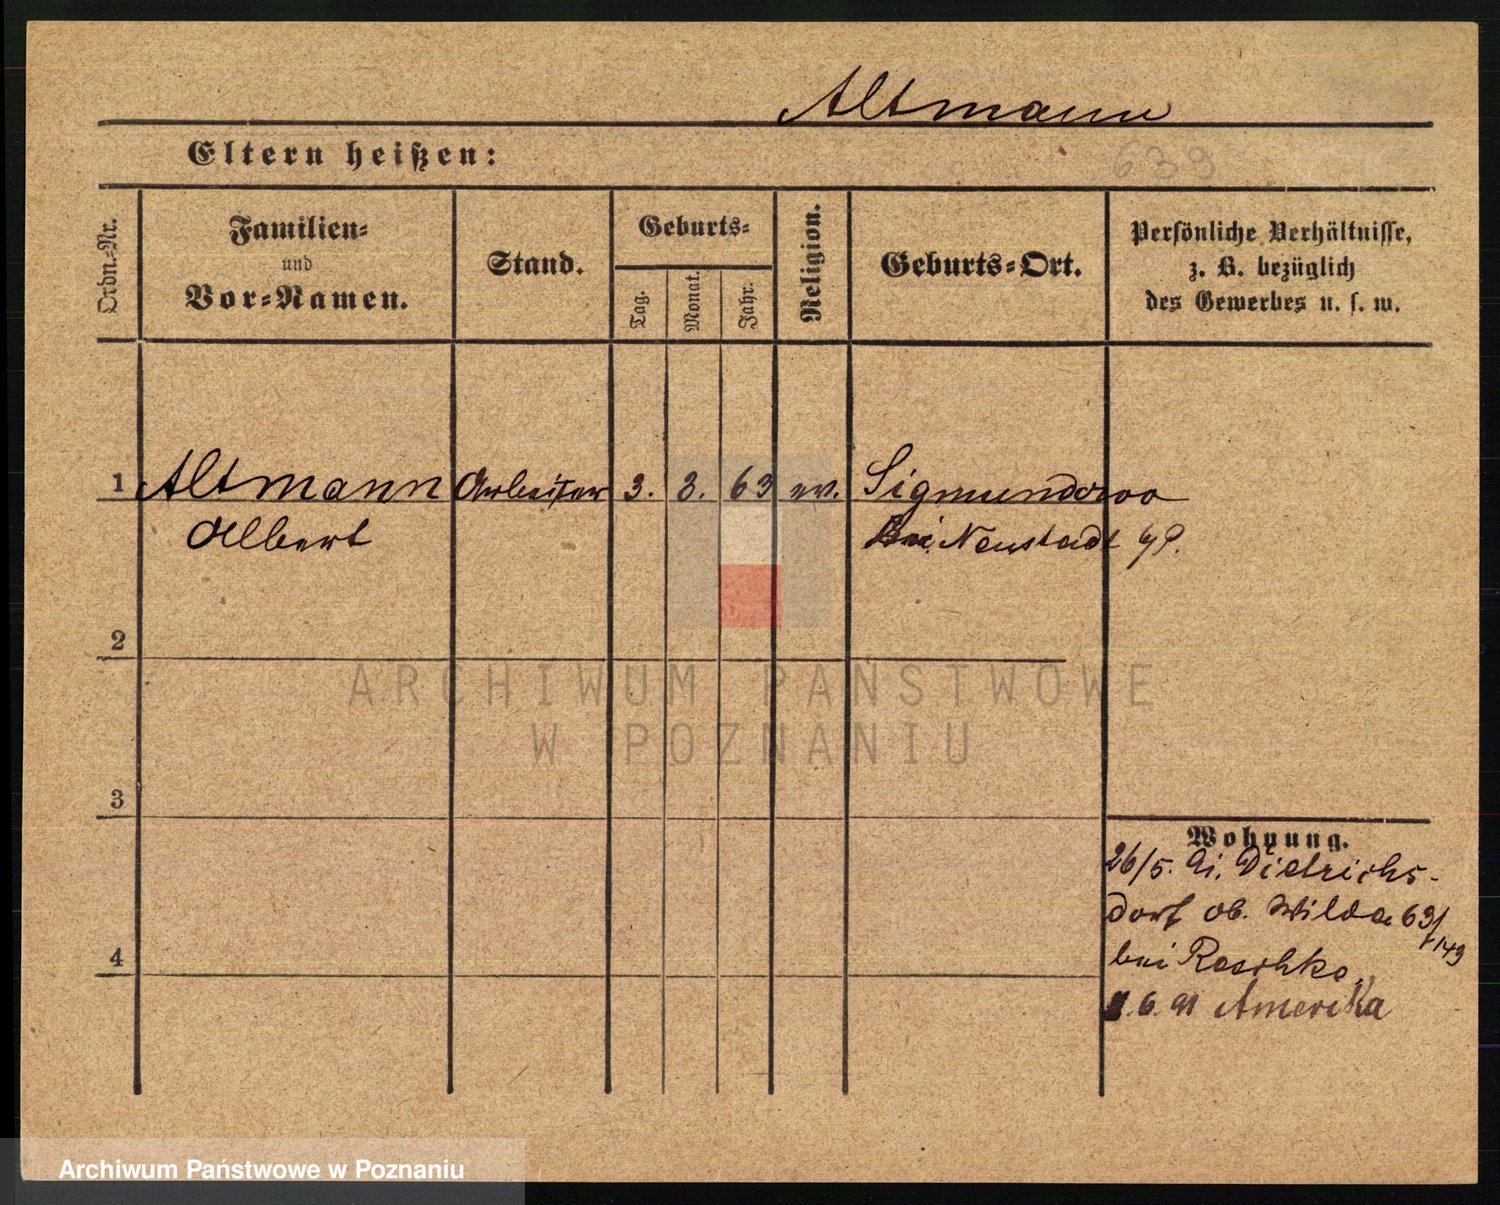 Altmann
Eltern heißen:
639
Ordn.-Nr.
Familien-
und
Vor-Namen.
Stand.
Geburts-
Tag.
Monat.
Jahr.
Religion.
Geburts-Ort.
Persönliche Verhältnisse,
z. B. bezüglich
des Gewerbes u. s. w.
1 Altmann Arbeiter 3. 3. 63 ev. Sigmundowo
Albert bei Neustadt
2
3
4
Wohnung.
26/5. 91. Dietrichs-
dorf ob. Wilda 63/149
bei Raschke
.6.91 Amerika
ARCHIWUM PAŃSTWOWE
W POZNANIU
Archiwum Państwowe w Poznaniu